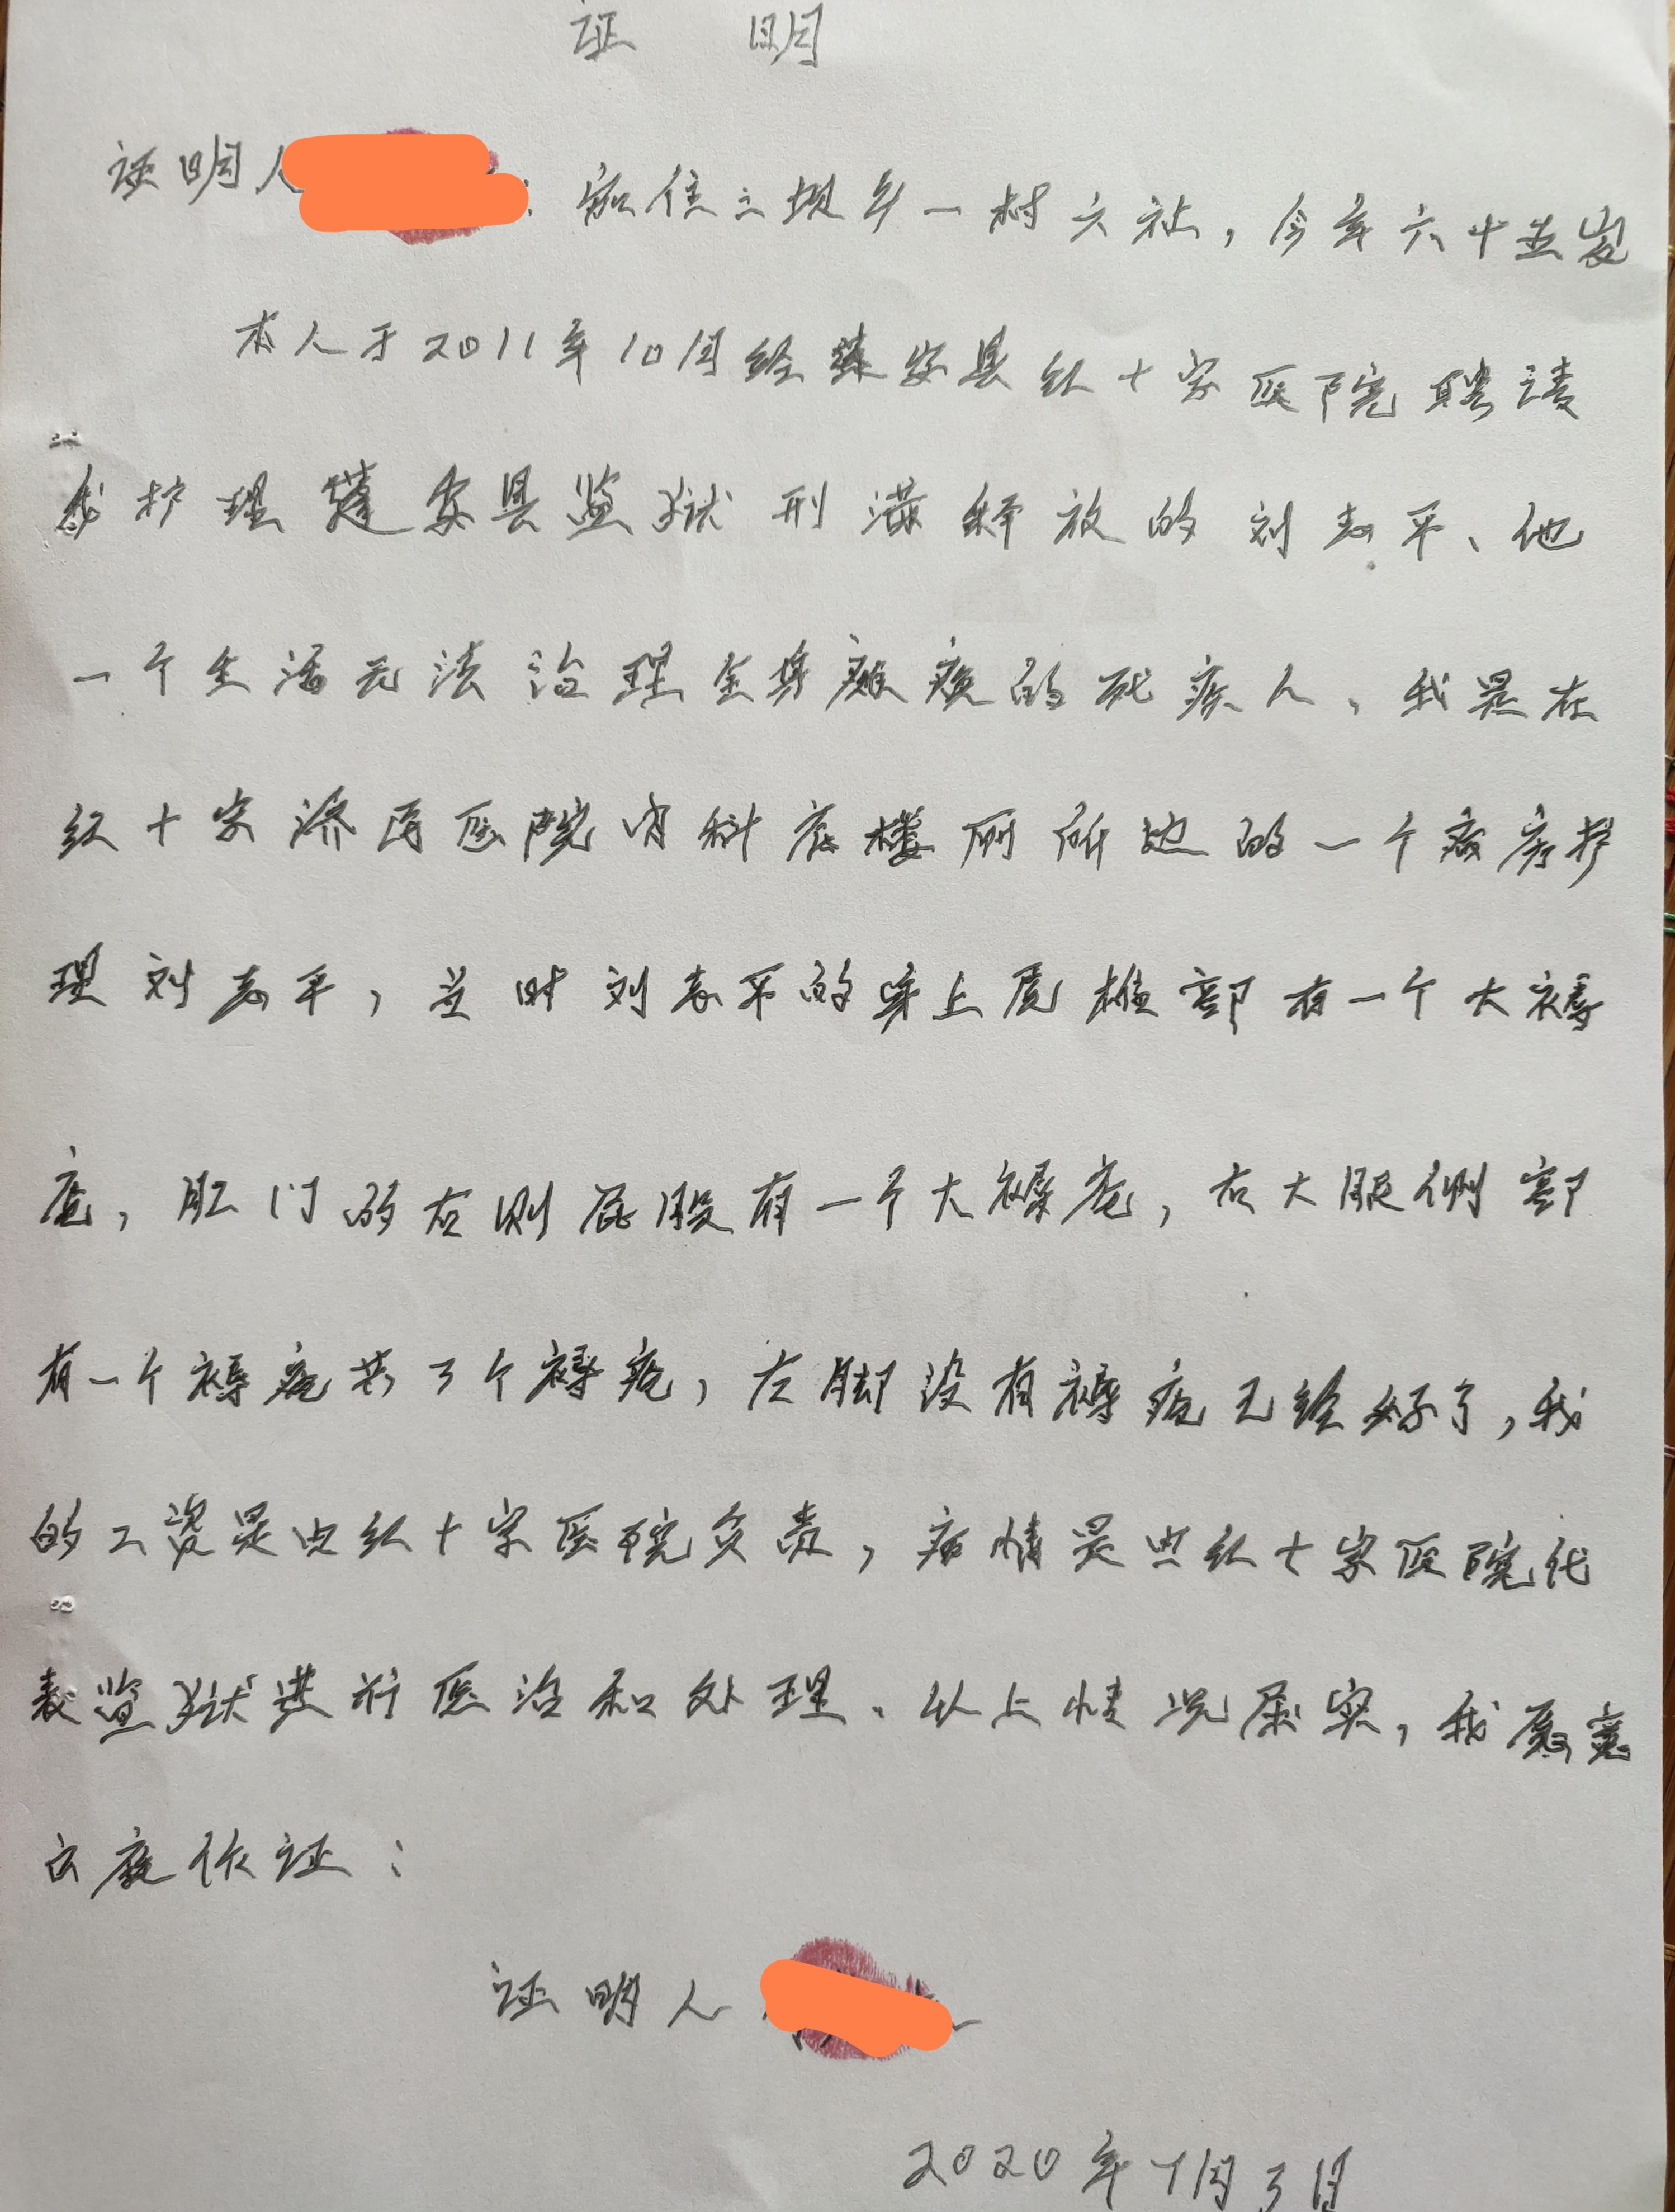 证 明
证明人 : 家住三坝乡一村六社，今年六十五岁
本人于2011年10月经蓬安县红十字医院聘请
我护理蓬安县监狱刑满释放的刘志平、他
一个生活无法治理全身瘫痪的残疾人、我是在
红十字济民医院内科底楼厕所边的一个病房护
理刘志平，当时刘志平的身上尾椎部有一个大褥
疮，肛门的右则屁股有一个大褥疮，右大腿侧部
有一个褥疮共3个褥疮，左脚没有褥疮已经好了，我
的工资是由红十字医院负责，病情是由红十字医院代
表监狱进行医治和处理。以上情况属实，我愿意
出庭作证：
证明人
2020年7月3日